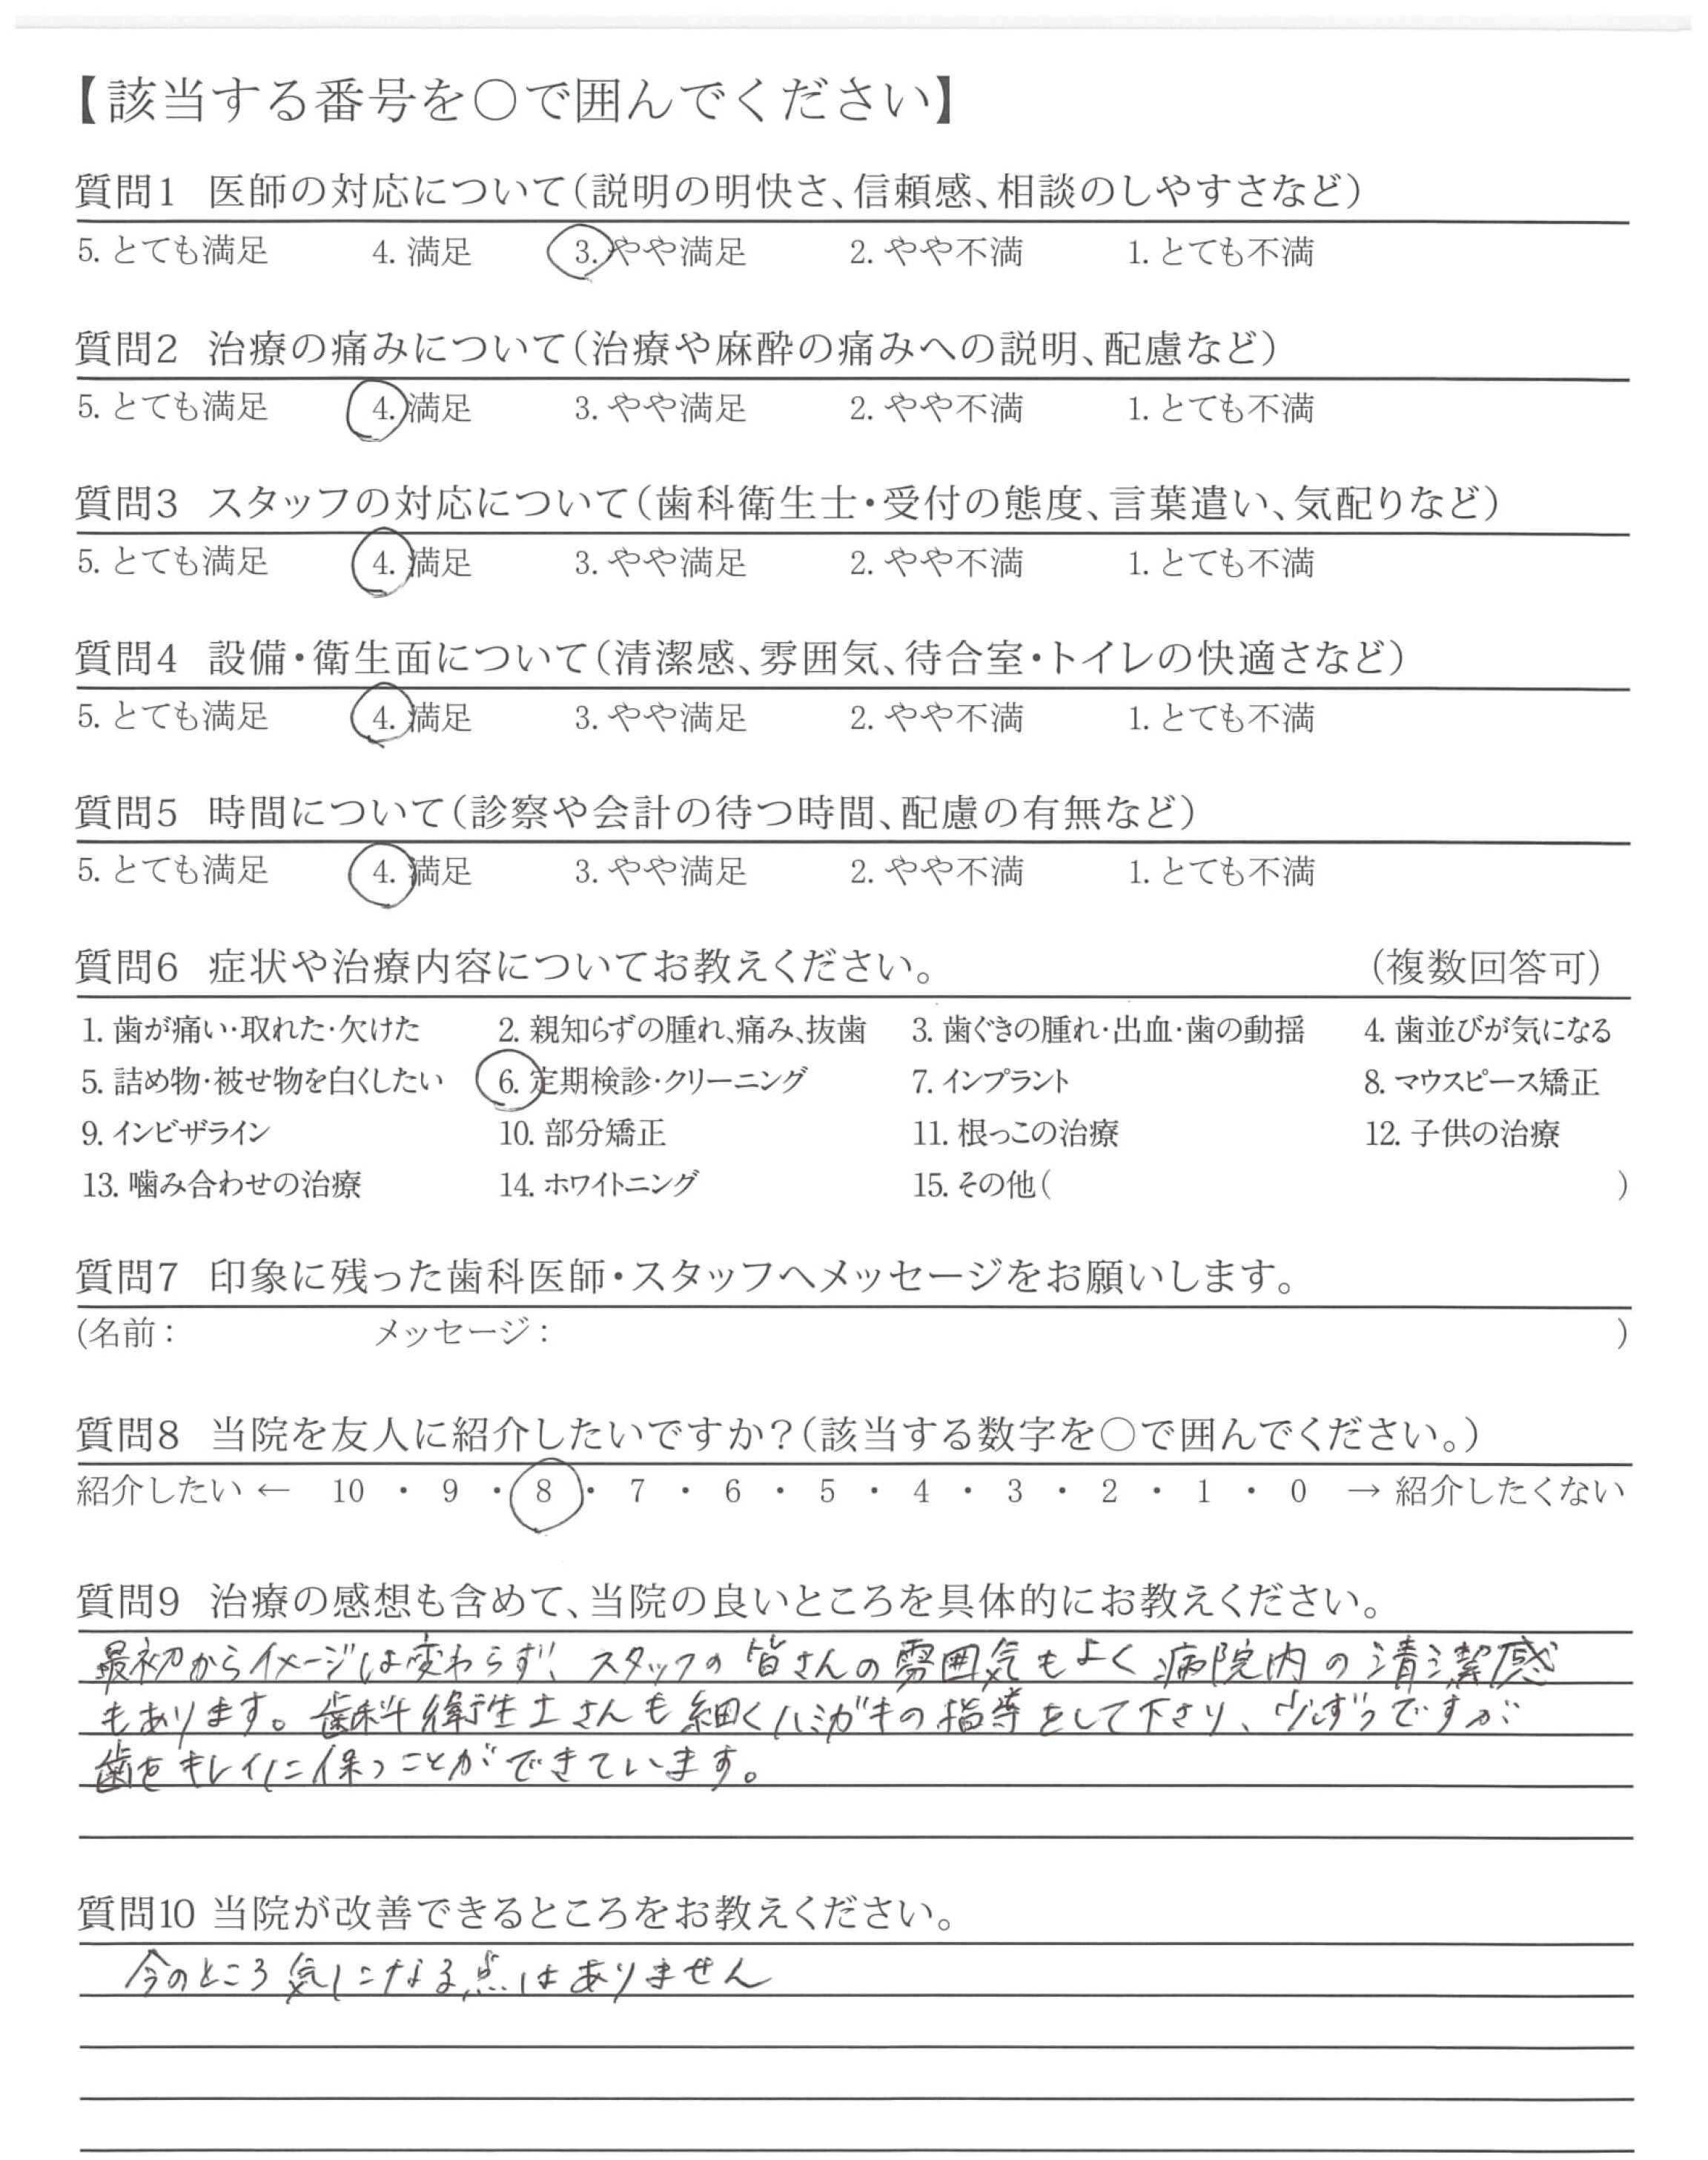 【該当する番号を○で囲んでください】
質問1 医師の対応について(説明の明快さ、信頼感、相談のしやすさなど)
5. とても満足 4. 満足 3. やや満足 2. やや不満 1. とても不満
質問2 治療の痛みについて(治療や麻酔の痛みへの説明、配慮など)
5. とても満足 4. 満足 3. やや満足 2. やや不満 1. とても不満
質問3 スタッフの対応について(歯科衛生士・受付の態度、言葉遣い、気配りなど)
5. とても満足 4. 満足 3. やや満足 2. やや不満 1. とても不満
質問4 設備・衛生面について(清潔感、雰囲気、待合室・トイレの快適さなど)
5. とても満足 4. 満足 3. やや満足 2. やや不満 1. とても不満
質問5 時間について(診察や会計の待つ時間、配慮の有無など)
5. とても満足 4. 満足 3. やや満足 2. やや不満 1. とても不満
質問6 症状や治療内容についてお教えください。 (複数回答可)
1. 歯が痛い・取れた・欠けた 2. 親知らずの腫れ、痛み、抜歯 3. 歯ぐきの腫れ・出血・歯の動揺 4. 歯並びが気になる
5. 詰め物・被せ物を白くしたい 6. 定期検診・クリーニング 7. インプラント 8. マウスピース矯正
9. インビザライン 10. 部分矯正 11. 根っこの治療 12. 子供の治療
13. 噛み合わせの治療 14. ホワイトニング 15. その他( )
質問7 印象に残った歯科医師・スタッフへメッセージをお願いします。
(名前: メッセージ: )
質問8 当院を友人に紹介したいですか?(該当する数字を○で囲んでください。)
紹介したい ← 10 ・ 9 ・ 8 ・ 7 ・ 6 ・ 5 ・ 4 ・ 3 ・ 2 ・ 1 ・ 0 → 紹介したくない
質問9 治療の感想も含めて、当院の良いところを具体的にお教えください。
最初からイメージは変わらず、スタッフの皆さんの雰囲気もよく病院内の清潔感
もあります。歯科衛生士さんも細くハミガキの指導をして下さり、少しずつですが
歯をキレイに保つことができています。
質問10 当院が改善できるところをお教えください。
今のところ気になる点はありません